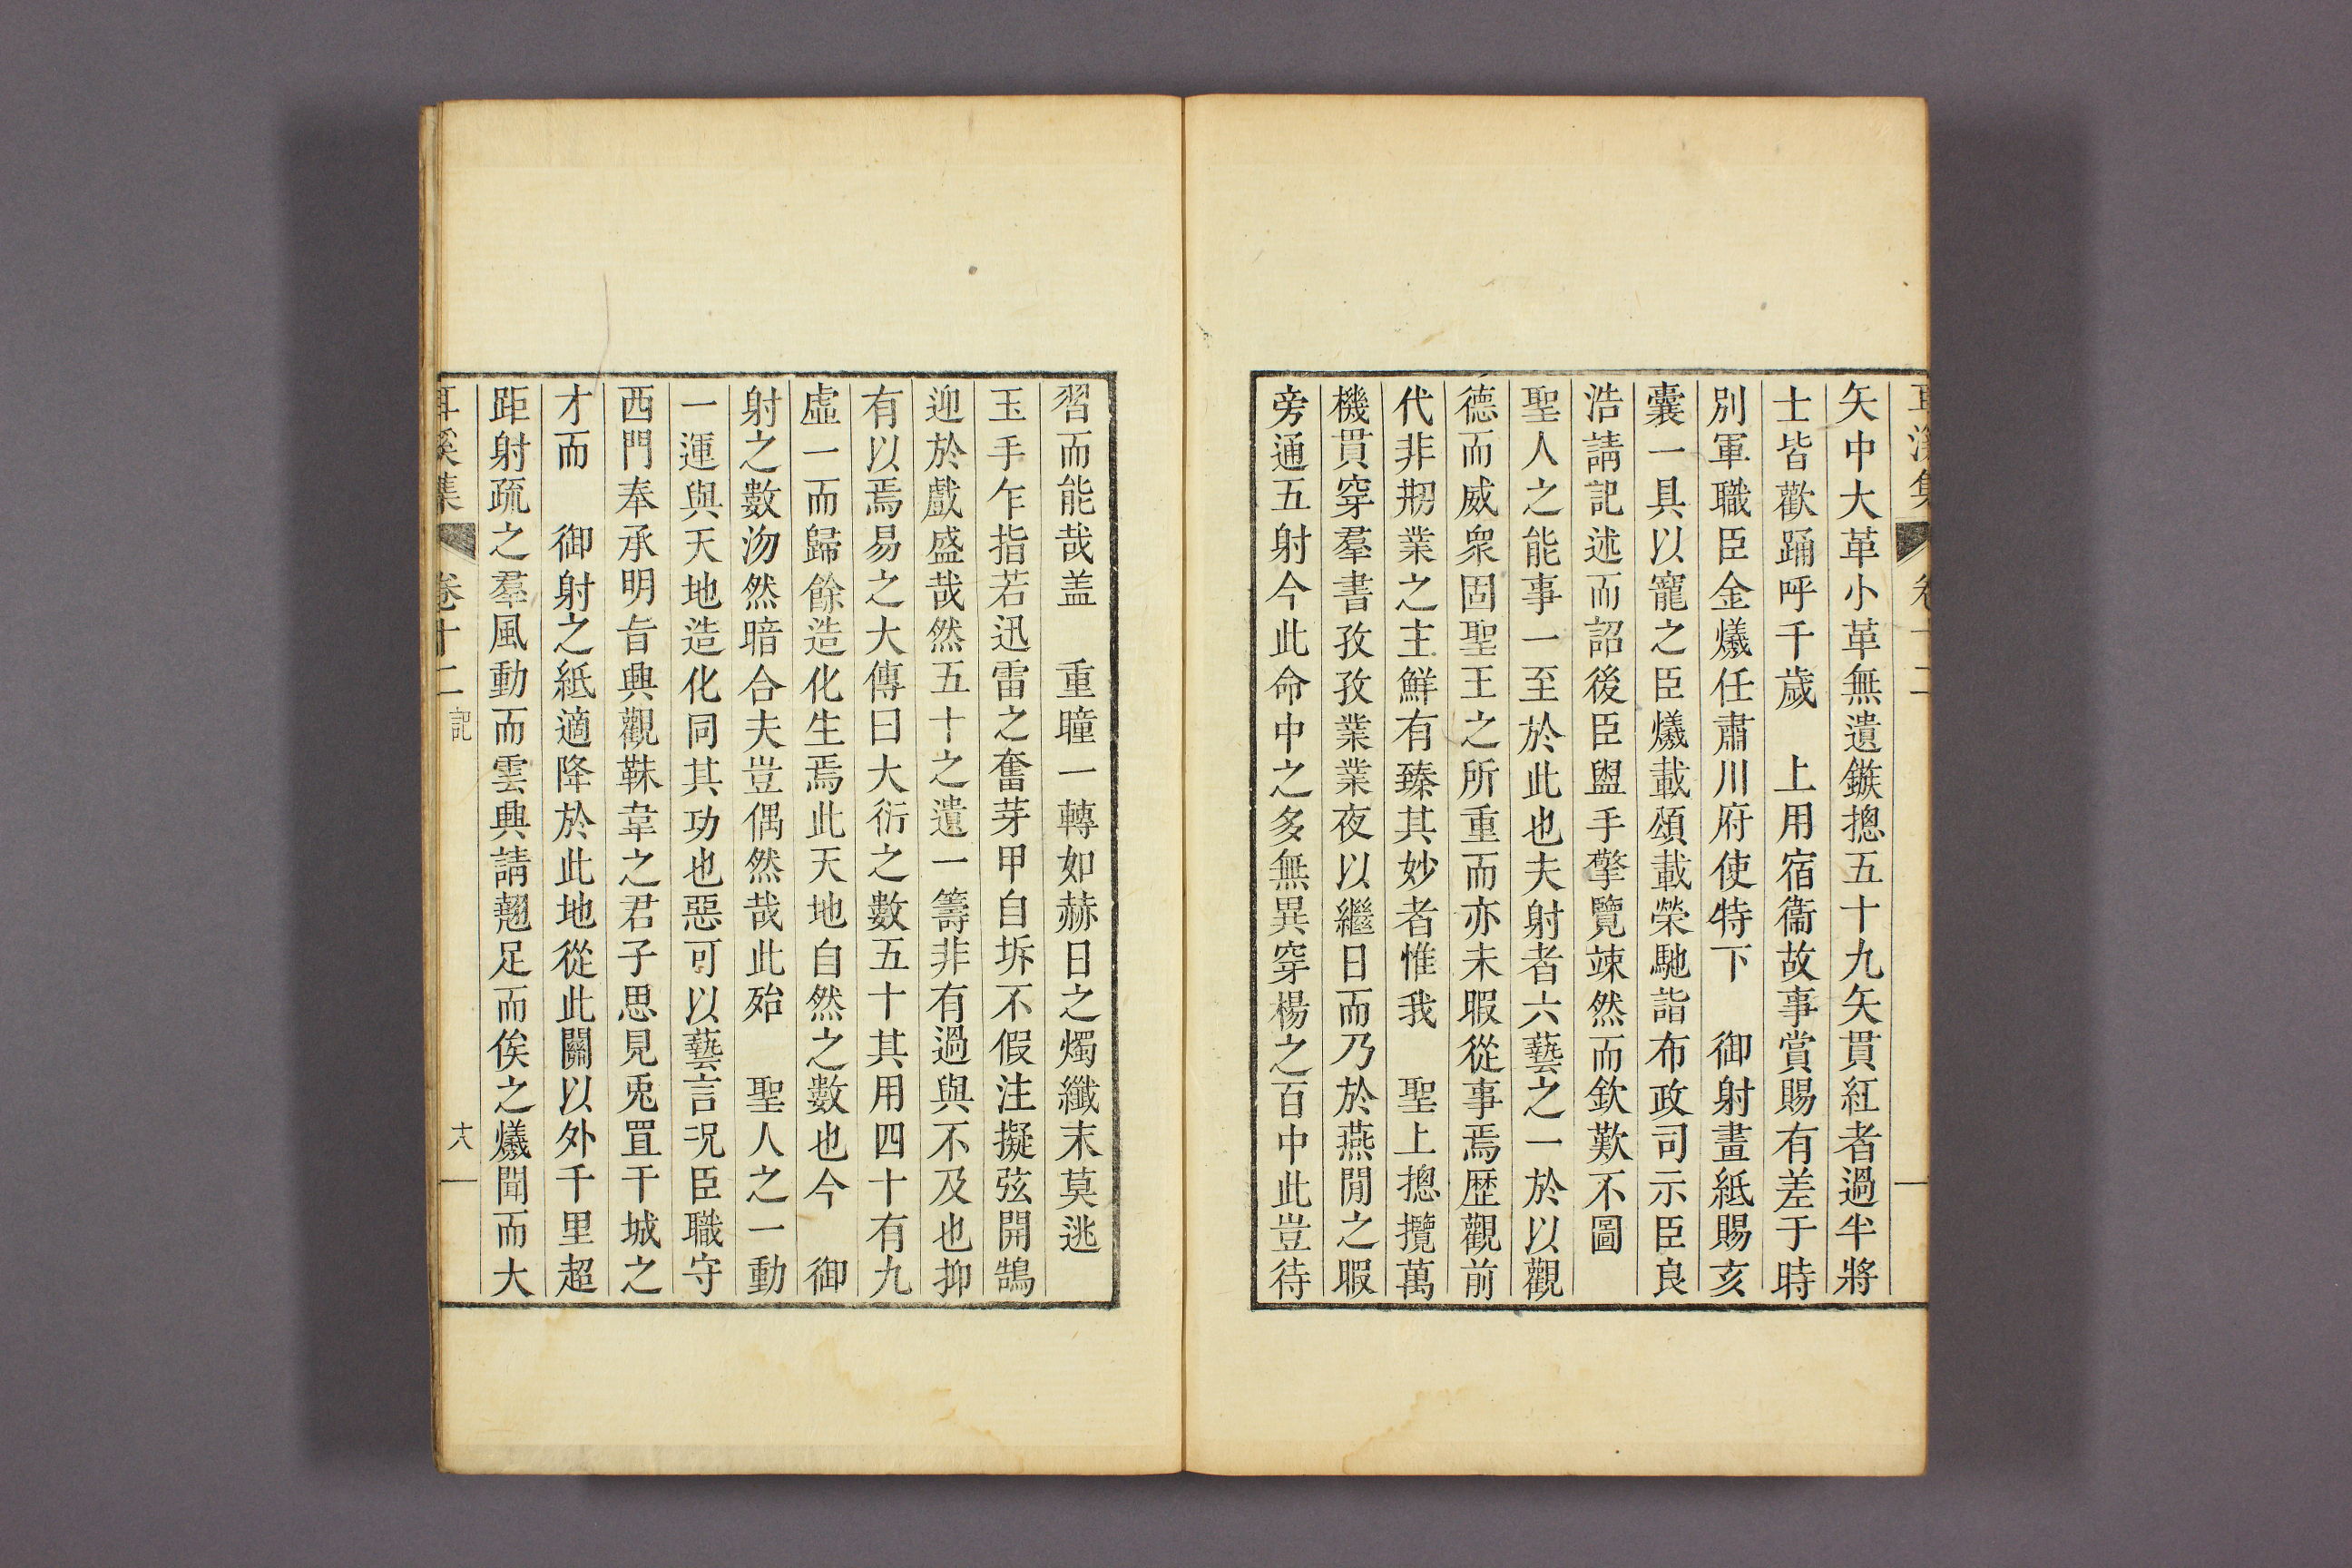 矢中大革小革無遺鏃摠五十九矢貫紅者過半將
士皆歡踊呼千歲　上用宿衞故事賞賜有差于時
別軍職臣金爔任肅川府使特下　御射畫紙賜亥
囊一具以寵之臣爔載頌載榮馳詣布政司示臣良
浩請記述而詔後臣盥手擎覽竦然而欽歎不圖
聖人之能事一至於此也夫射者六藝之一於以觀
德而威衆固聖王之所重而亦未暇從事焉歷觀前
代非刱業之主鮮有臻其妙者惟我　聖上摠攬萬
機貫穿羣書孜孜業業夜以繼日而乃於燕閒之暇
旁通五射今此命中之多無異穿楊之百中此豈待
習而能哉盖　重瞳一轉如赫日之燭纖末莫逃
玉手乍指若迅雷之奮芽甲自坼不假注擬弦開鵠
迎於戲盛哉然五十之遺一籌非有過與不及也抑
有以焉易之大傳曰大衍之數五十其用四十有九
虛一而歸餘造化生焉此天地自然之數也今　御
射之數沕然暗合夫豈偶然哉此殆　聖人之一動
一運與天地造化同其功也惡可以藝言况臣職守
西門奉承明旨興觀韎韋之君子思見兎罝干城之
才而　御射之紙適降於此地從此關以外千里超
距射疏之羣風動而雲興請翹足而俟之爔聞而大
耳溪集　卷十二　記　十八